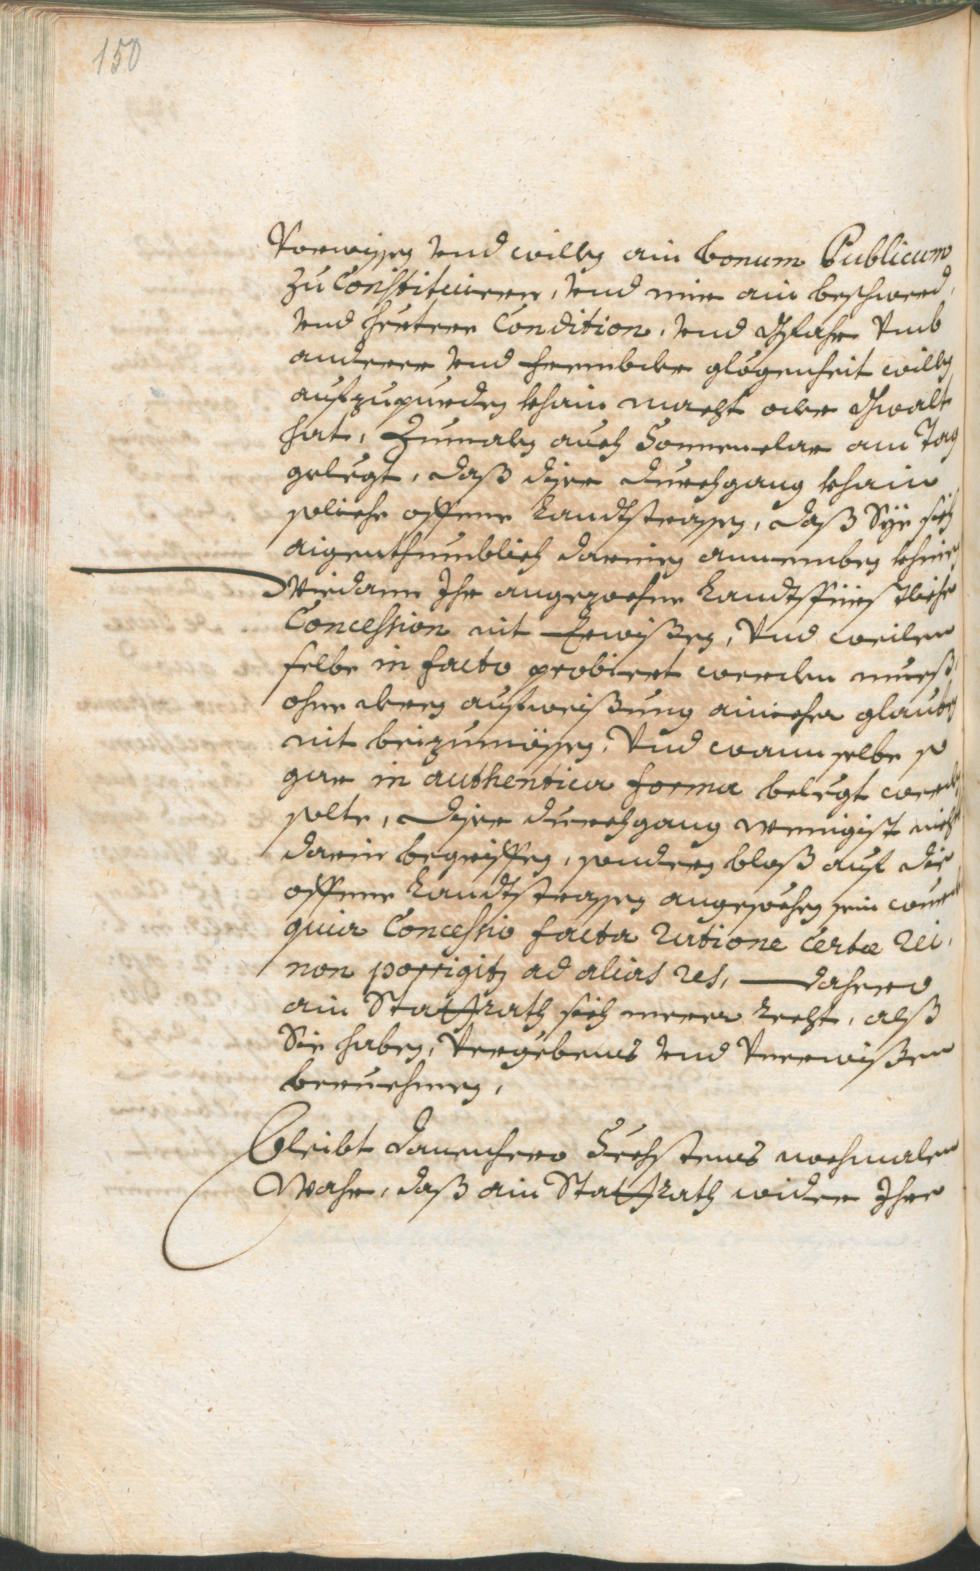 150
Vorwissen vnd willen ain bonum Publicum
zu Constituieren, vnd mir ain beschwerd,
vnd hertere Condition, vnd gfahr vmb
anderer vnd frembder glögenheit willen
aufzupürden khain macht oder gwalt
hat, Zumalen auch Sonnenclar am Tag
geligt, daß diser durchgang khain
soliche offene Landtstrassen, daß Sye sich
aigenthumblich darinen annemben khinen
Wiedann Ihr angezochne Landtsfürstliche
Concession nit Erwißen, Vnd weilen
selbe in facto probiert werden mueß,
ohne deren aufweißung ainicher glauben
nit beizumössen, Vnd wann selbe so
gar in authentica forma belegt werden
solte, diser durchgang wenigist nicht
darin begriffen, sonderen bloß auf die
offene Landtstrassen angesechen sein wurdt
quia Concessio facta ratione certæ rei,
non porrigitr ad alias res, dahero
ain Stattrath sich merer recht, alß
Sie haben, Vergebens vnd Vnerwißen
beruehmen,
Bleibt dannenhero Sechstens nochmalen
Wahr, daß ain Stattrath wider Ihre